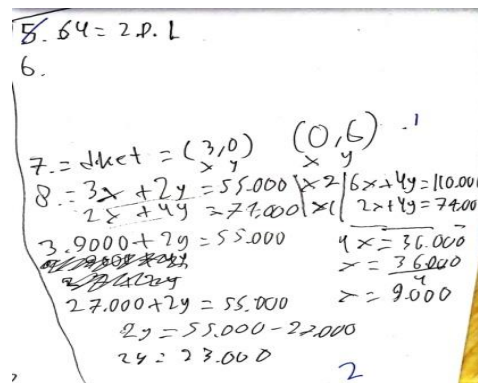 5. 64 = 2.P.L
6.
7. = diket = (3,0) (0,6) .1
x y x y
8. = 3x + 2y = 55.000 |x2| 6x + 4y = 110.000
2x + 4y = 74.000 |x1| 2x + 4y = 74.00
3.9000 + 2y = 55.000
4x = 36.000
x = 36.000
4
x = 9.000
27.000 + 2y = 55.000
2y = 55.000 - 27.000
2y = 23.000
2